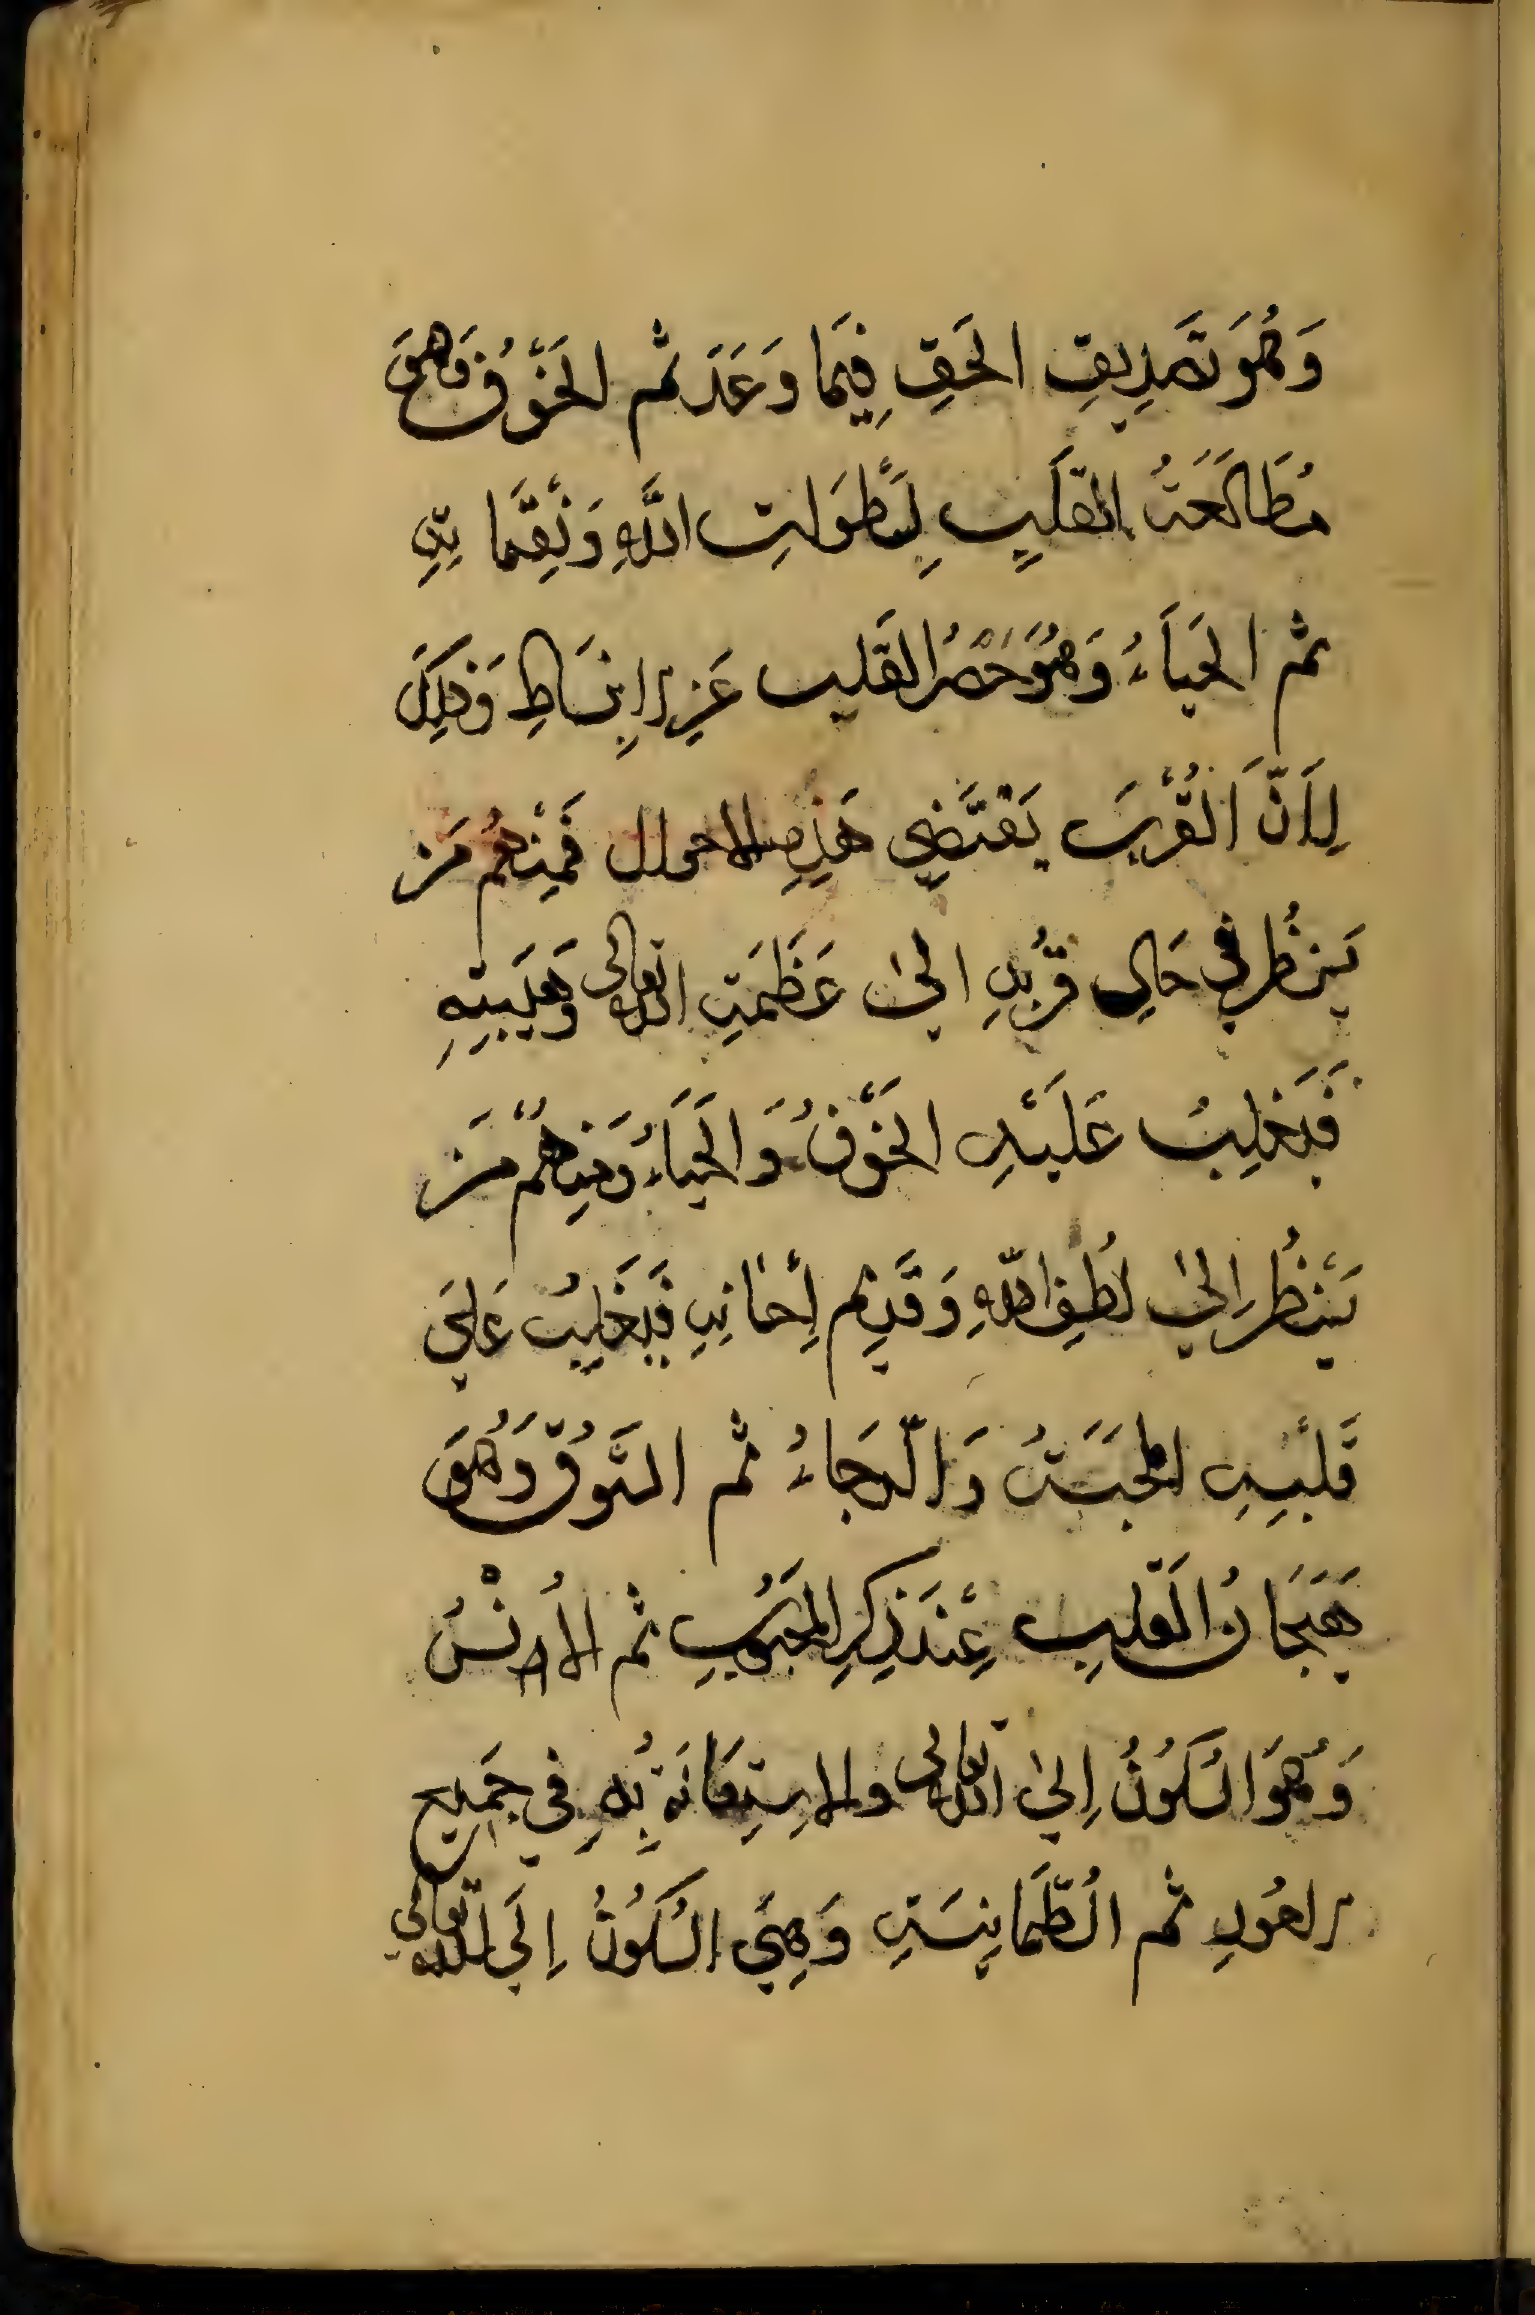 وَهُوَ تَصَدِيقِ الحَقِ فِيَما وَعَدَ ثم الخَوْفُ وَهوَ
مُطَالَعَتُ القَلَبِ لِسَطَوَاتِ اللَّهِ وَنِقَمَاتِهِ
ثم الحَياَءُ وَهُوَ حَصْرُ القَلبِ عَنِ الإِنبَسَاطِ وَذَلِكَ
لِاَنَّ القُرْبَ يَقتَضِي هَذِهِ الاحوال فَمِنْهُم مَن
يَنظُر في حَالِ قُرْبِهِ اليٰ عَظَمَتِ الله تعالى وَهَيبتِهِ
فَيَغلِبُ عَلَيْهِ الخَوْفُ وَالحَيَاءُ وَمِنهُمْ مَن
يَنْظُر اِليٰ لُطفِ اللّهِ وَقَدِيم اِحْسانِهِ فَيَغلِبُ عَلىَ
قَلْبِهِ المحَبَتُ وَالرّجَاءُ ثم الشَّوُقُ وَهُوَ
هَيَجَانُ القَلبِ عِنْدَ ذِكرِ المَحبُوبِ ثم الأُنْسُ
وَهُوَ السُكُونُ اِليٰ الله تعالى والاستِعَانَة بِهِ في جَمِيع
الامُورِ ثم الطُّمَانِينَتِ وَهِيَ السُكُونُ اِلَي الله تعالي